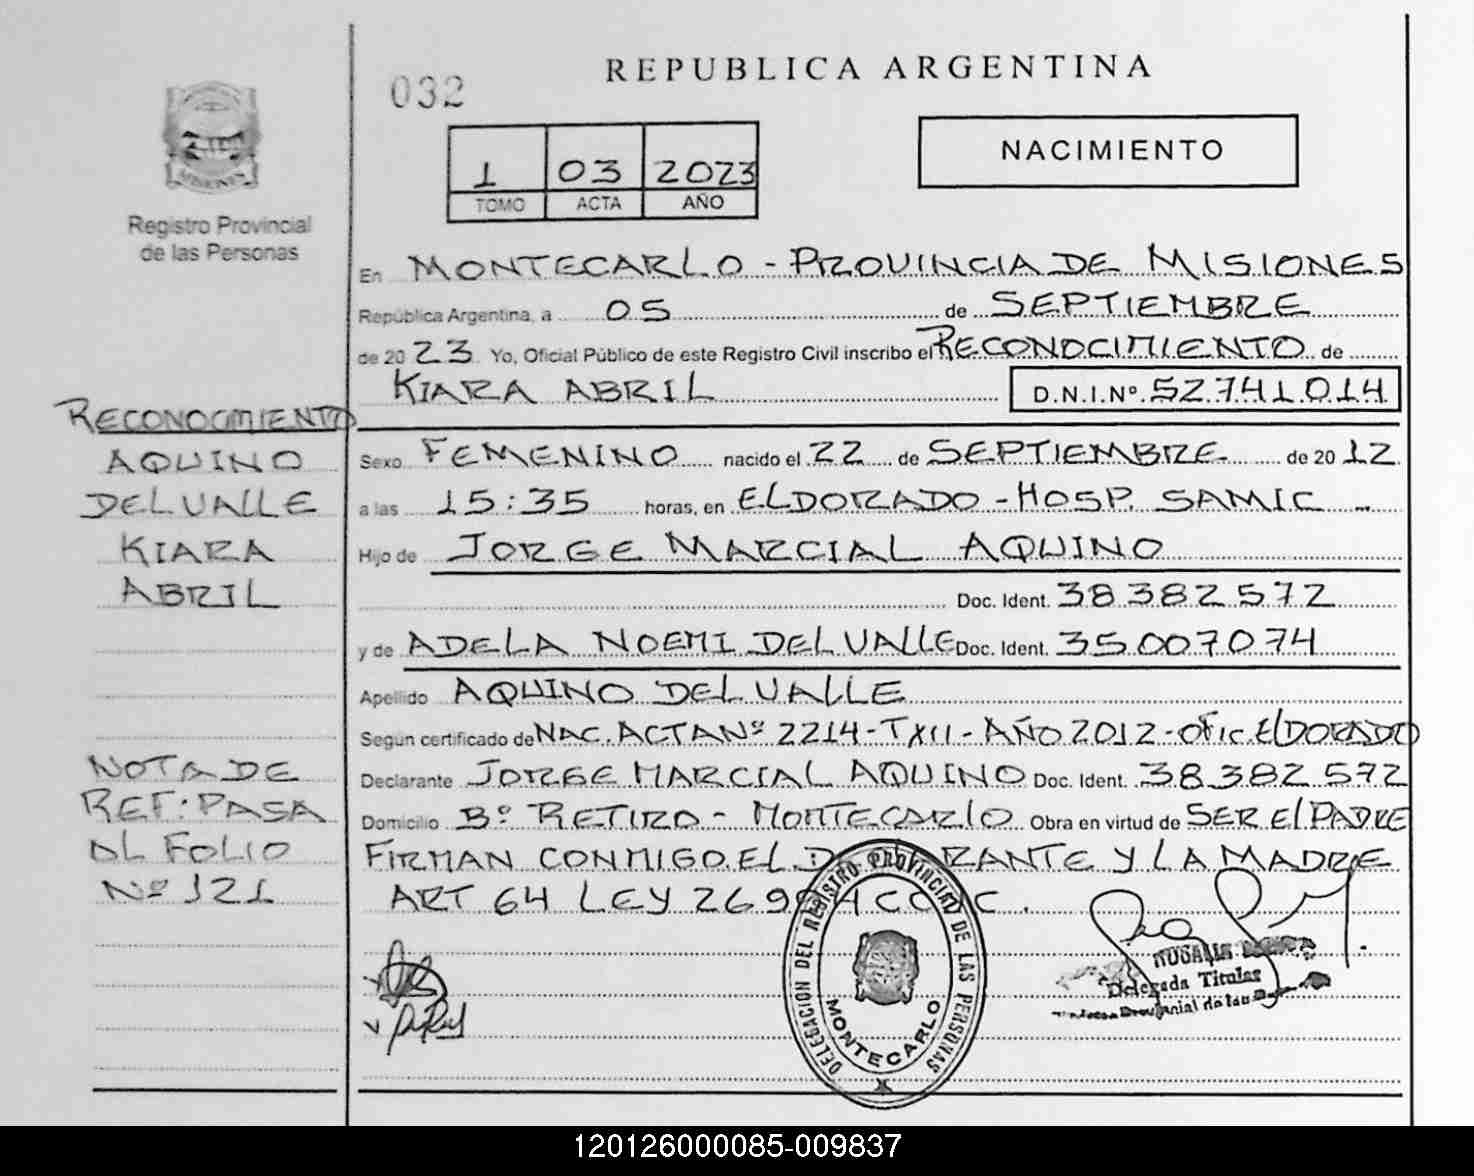 032
REPUBLICA ARGENTINA
NACIMIENTO
1 03 2023
TOMO ACTA AÑO
MISIONES
Registro Provincial
de las Personas
En MONTECARLO - PROVINCIA DE MISIONES
República Argentina, a 05 de SEPTIEMBRE
de 2023 Yo, Oficial Público de este Registro Civil inscribo el RECONOCIMIENTO de
KIARA ABRIL D.N.I.Nº. 52.741.014
RECONOCIMIENTO
AQUINO
DEL VALLE
KIARA
ABRIL
NOTA DE
REF: PASA
AL FOLIO
Nº 121
Sexo FEMENINO nacido el 22 de SEPTIEMBRE de 2012
a las 15:35 horas, en ELDORADO - HOSP. SAMIC -
Hijo de JORGE MARCIAL AQUINO
Doc. Ident. 38.382.572
y de ADELA NOEMI DEL VALLE Doc. Ident. 35.007.074
Apellido AQUINO DEL VALLE
Según certificado de NAC. ACTA Nº 2214 - T XII - AÑO 2012 - OFIC. ELDORADO
Declarante JORGE MARCIAL AQUINO Doc. Ident. 38.382.572
Domicilio Bº RETIRO - MONTECARLO Obra en virtud de SER El PADRE
FIRMAN CONMIGO EL RANTE Y LA MADRE
ART 64 LEY
DELEGACION DEL REGISTRO PROVINCIAL DE LAS PERSONAS
MONTECARLO
Delegada Titular
120126000085-009837